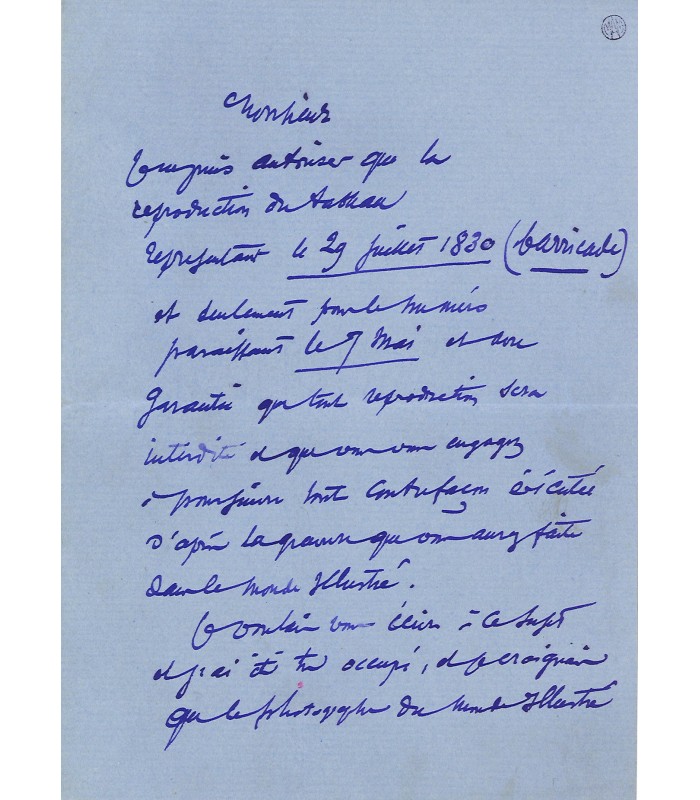 Monsieur
Je ne puis autoriser que la
reproduction du tableau
représentant le 29 juillet 1830 (barricade)
et seulement pour le numéro
paraissant le 7 Mai et avec
garantie que tout reproduction sera
interdite et que vous vous engagez
à poursuivre tout contrefaçon éxécutée
d'après la gravure que vous aurez faite
dans le Monde Illustré.
Je voulais vous écrire à ce sujet
et j'ai été très occupé, et je craignais
que le photographe du Monde Illustré